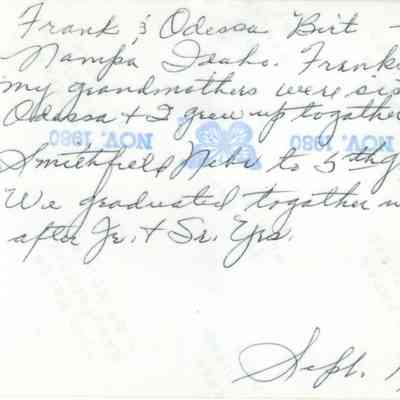 Frank & Odessa Birt -
Nampa Idaho. Frank
my grandmothers were sis
Odessa & I grew up together
NOV. 1980
NOV. 1980
Smithfield Nebr to 5th g
We graduated together
after Jr. & Sr. Yrs.
Sept.